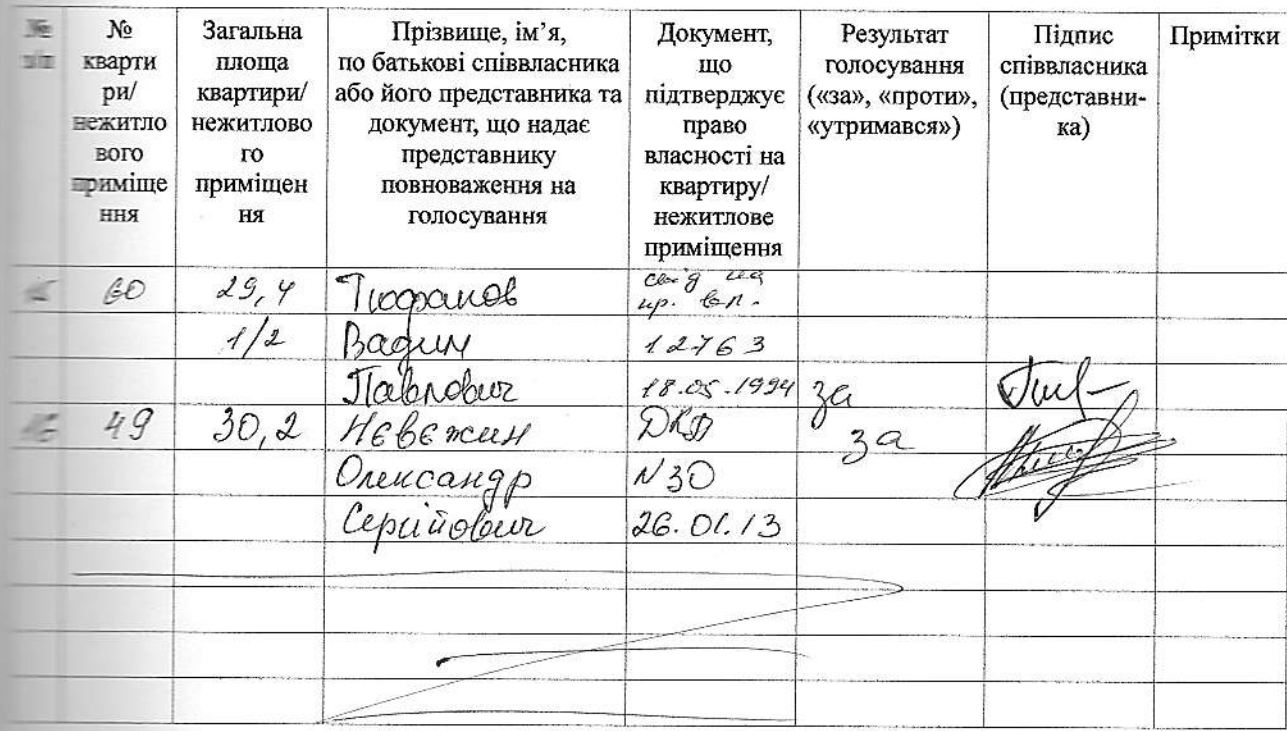 № з/п
№ кварти ри/ нежитло вого приміще ння
Загальна площа квартири/ нежитлово го приміщен ня
Прізвище, ім’я, по батькові співвласника або його представника та документ, що надає представнику повноваження на голосування
Документ, що підтверджує право власності на квартиру/ нежитлове приміщення
Результат голосування («за», «проти», «утримався»)
Підпис співвласника (представни- ка)
Примітки
15 60 29,4 свід на
пр. вл.
1/2 Вадим 12763
Павлович 18.05.1994 за
16 49 30,2 Нєвєжин ДКП за
Олександр N30
Сергійович 26.01.13